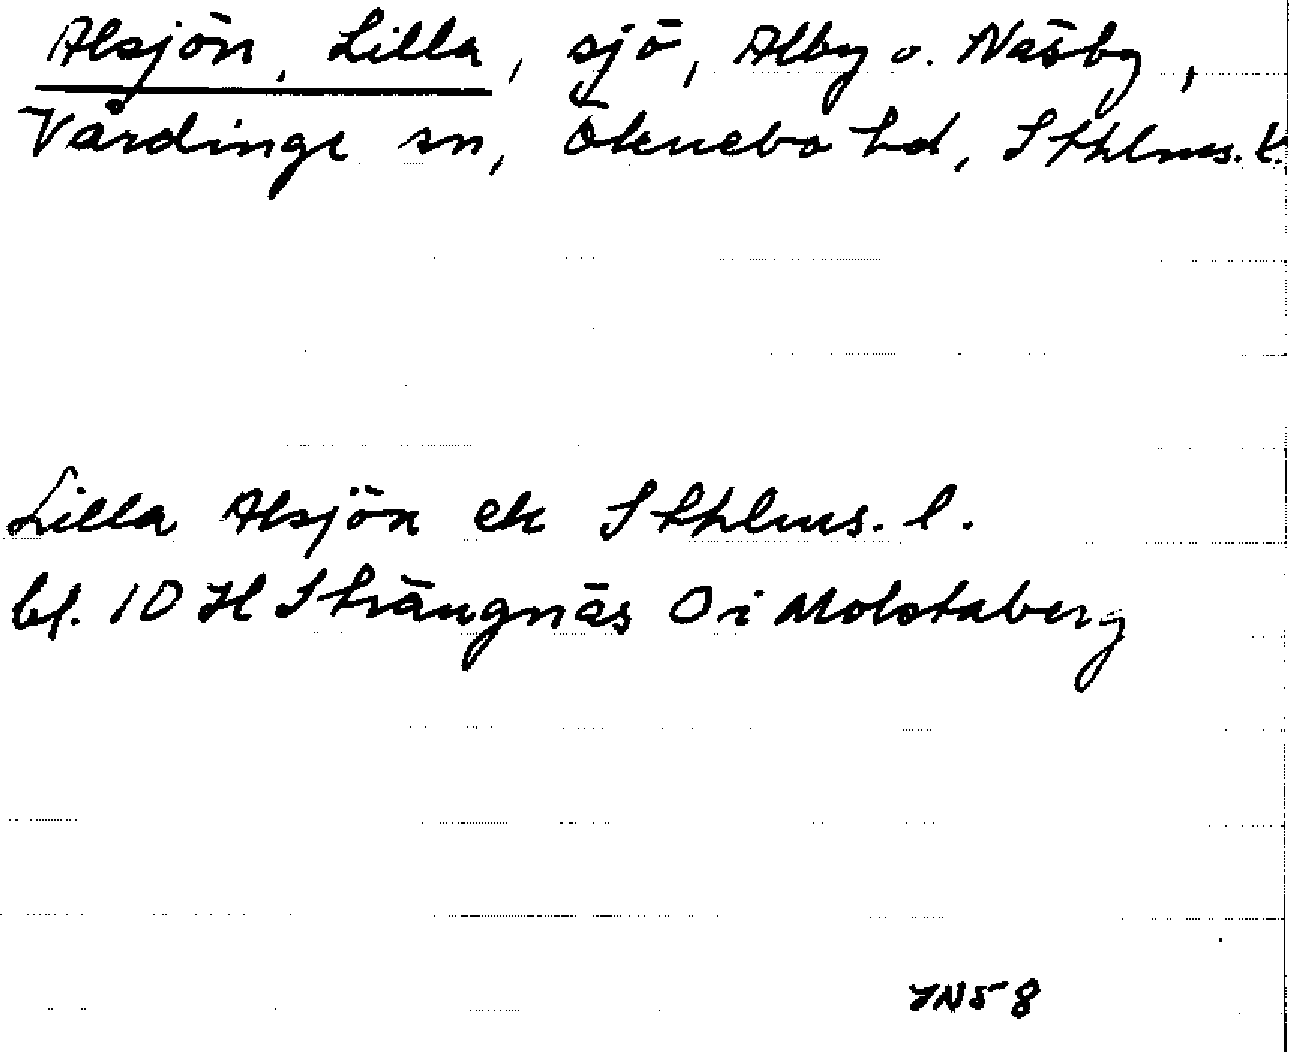 Alsjön, Lilla, sjö, Alby o. Näsby,
Vårdinge sn, Öknebo hd, Sthlms. l.
Lilla Alsjön ek Sthlms. l.
bl. 10 H Strängnäs O i Molstaberg
YN58